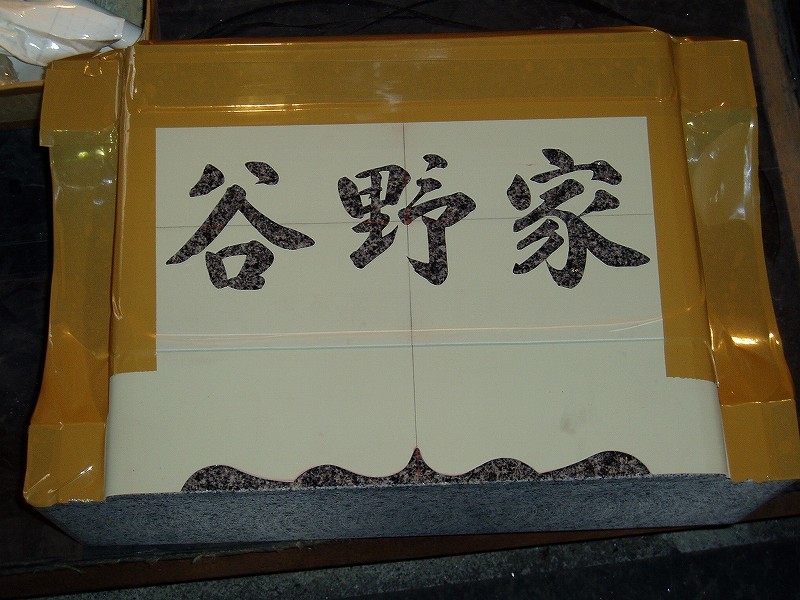 谷野家